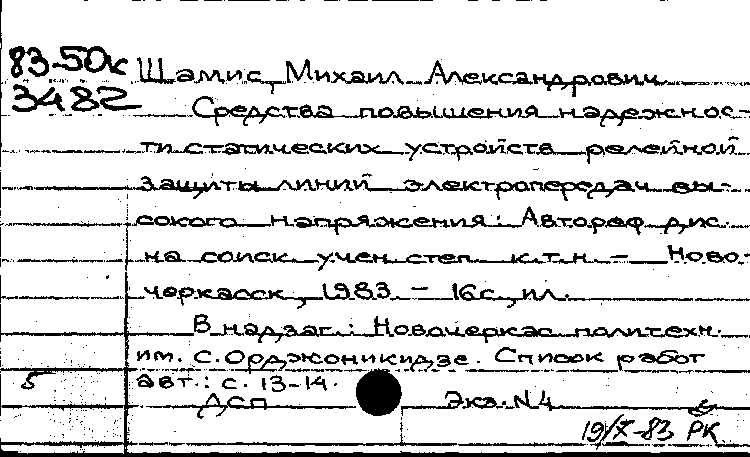 83-50к
3482
Шамис, Михаил Александрович
Средства повышения надежнос-
ти статических устройств релейной
защиты линий электропередач вы-
сокого напряжения: Автореф дис.
на соиск учен степ. к.т.н. - Ново-
черкасск, 1983. - 16с., ил.
В надзаг.: Новочеркас политехн.
им. С. Орджоникидзе. Список работ
авт.: с. 13-14.
5
ДСП Экз. N4
19/X-83 РК